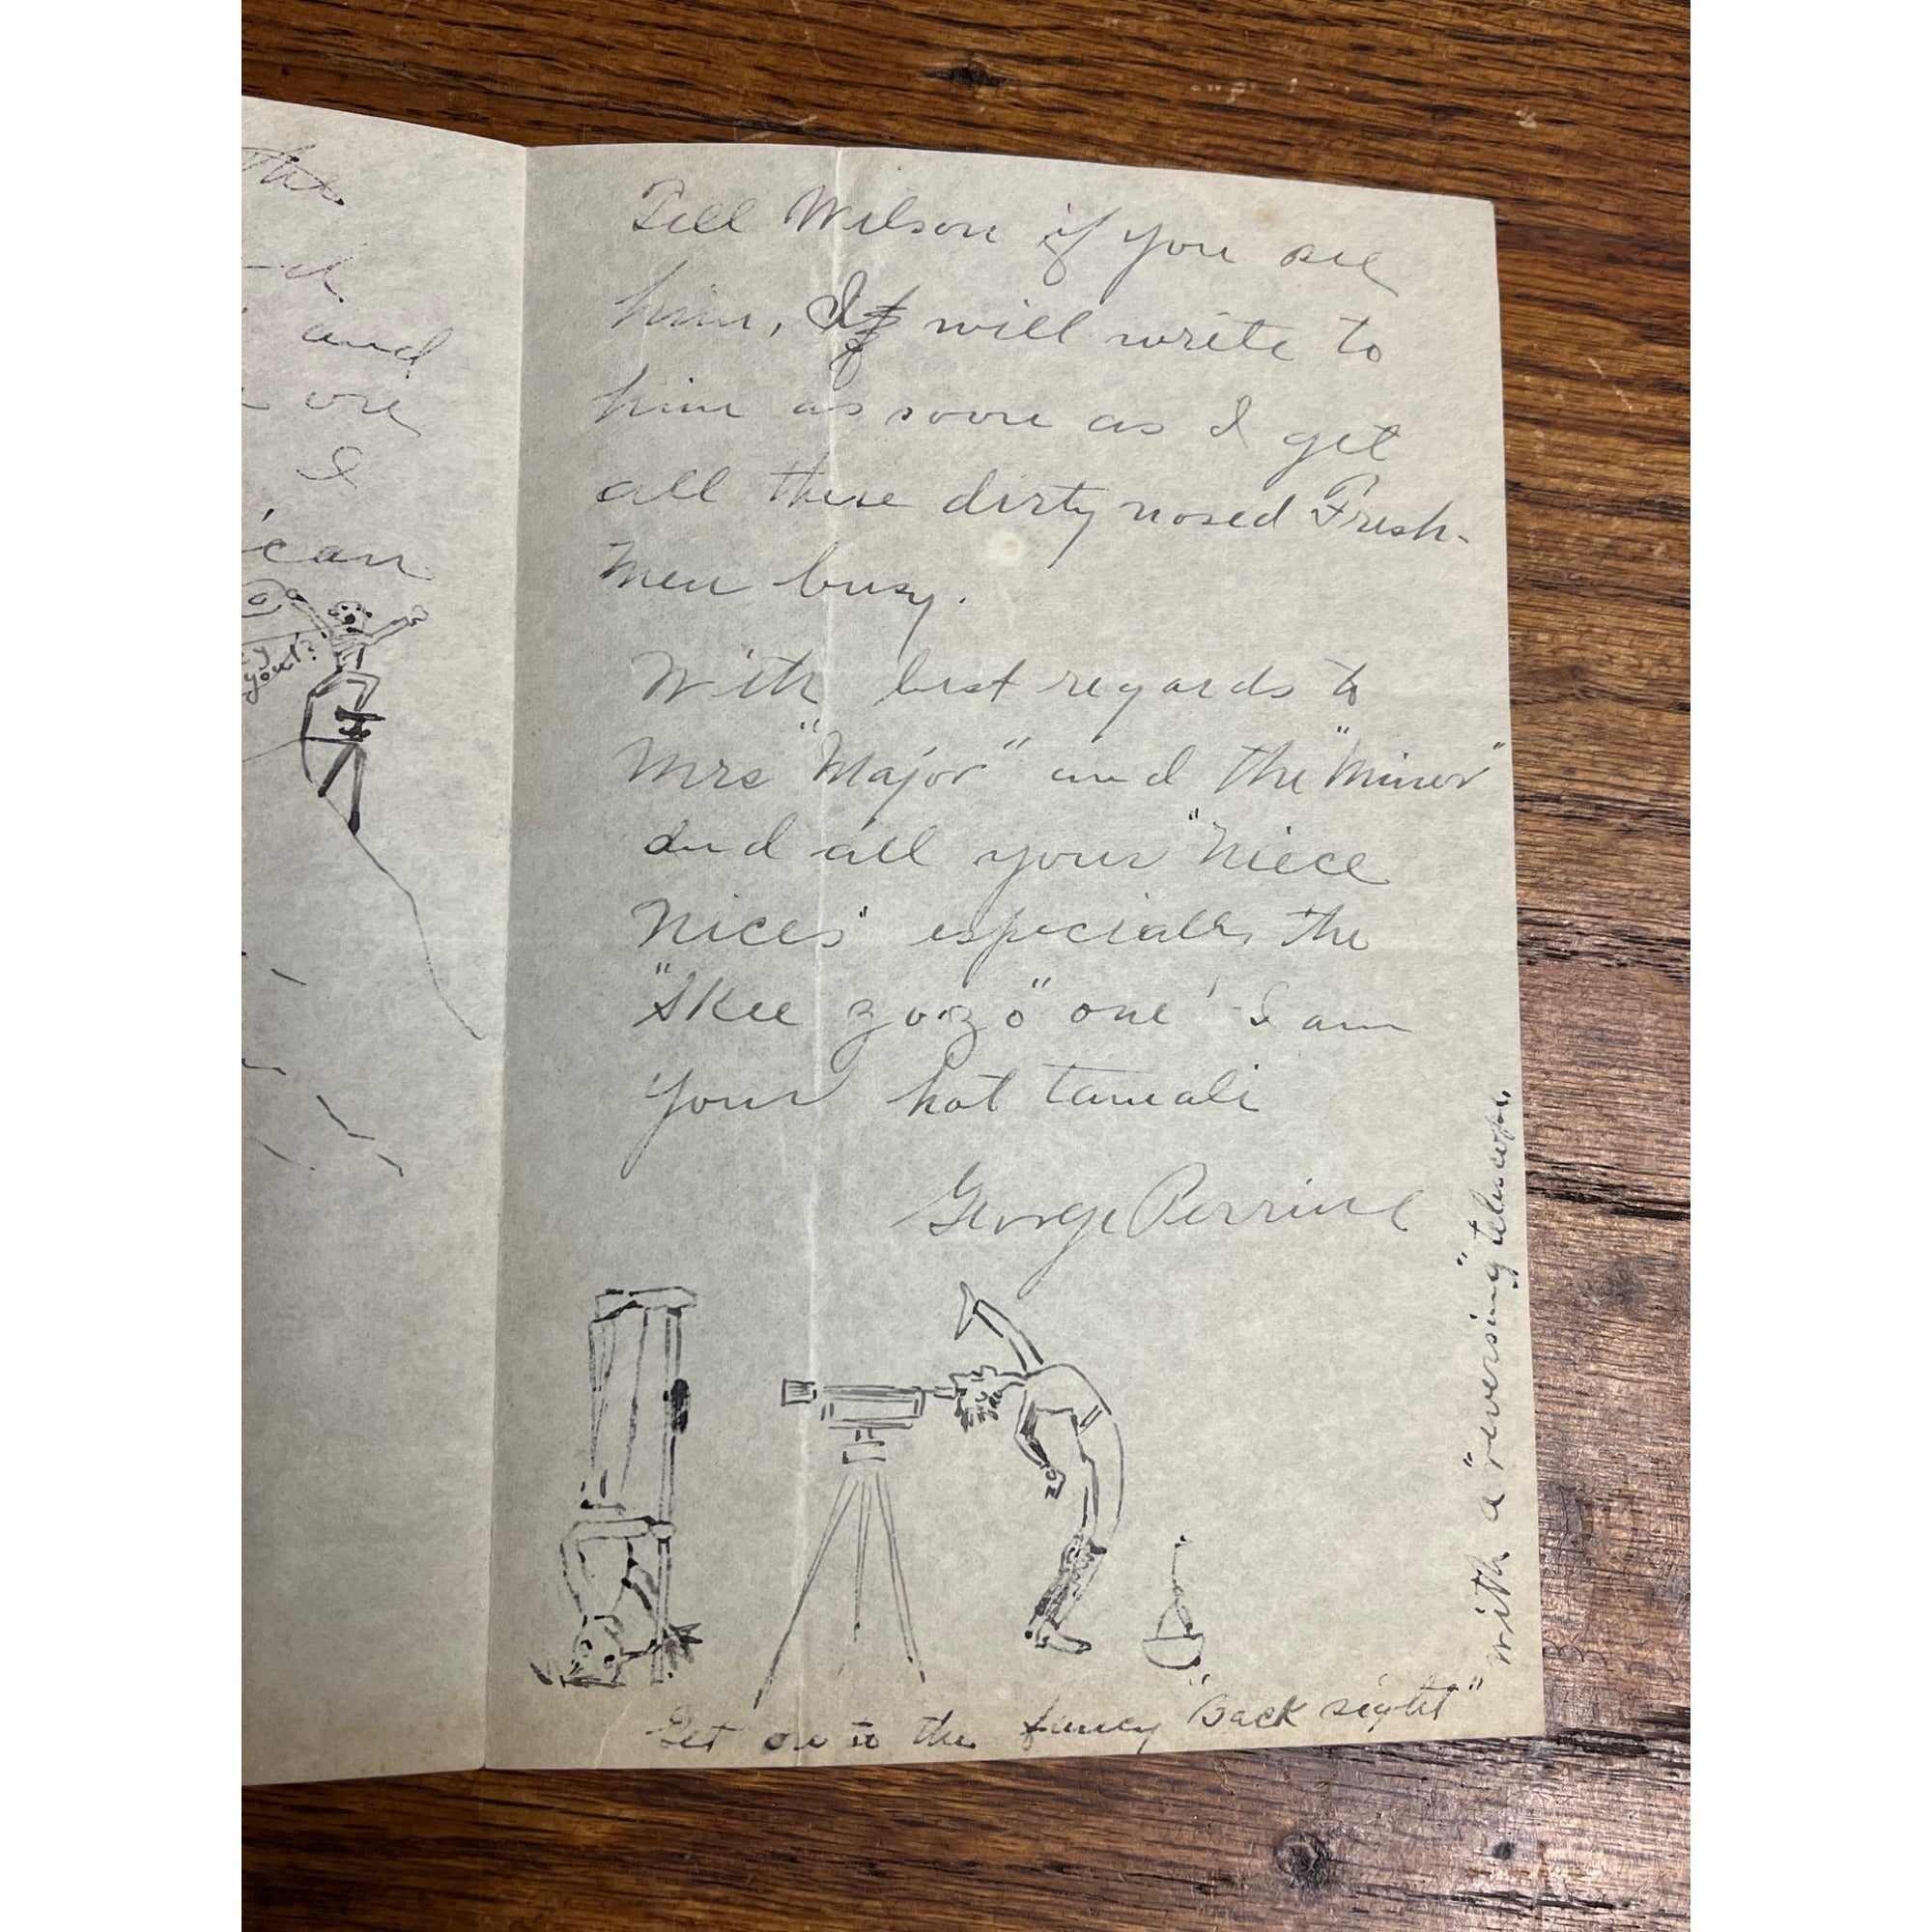 the
and
on
I
can
you!?
Tell Wilson if you see
him, I will write to
him as soon as I get
all these dirty nosed Fresh-
men busy.
With best regards to
Mrs "Major" and the "Minor"
and all your "Niece
Nices" especially the
"Skee zo·zo" one' I am
your hot tamali
George Perrine
Get on to the fancy "Back sight"
with a "reversing" telescope.